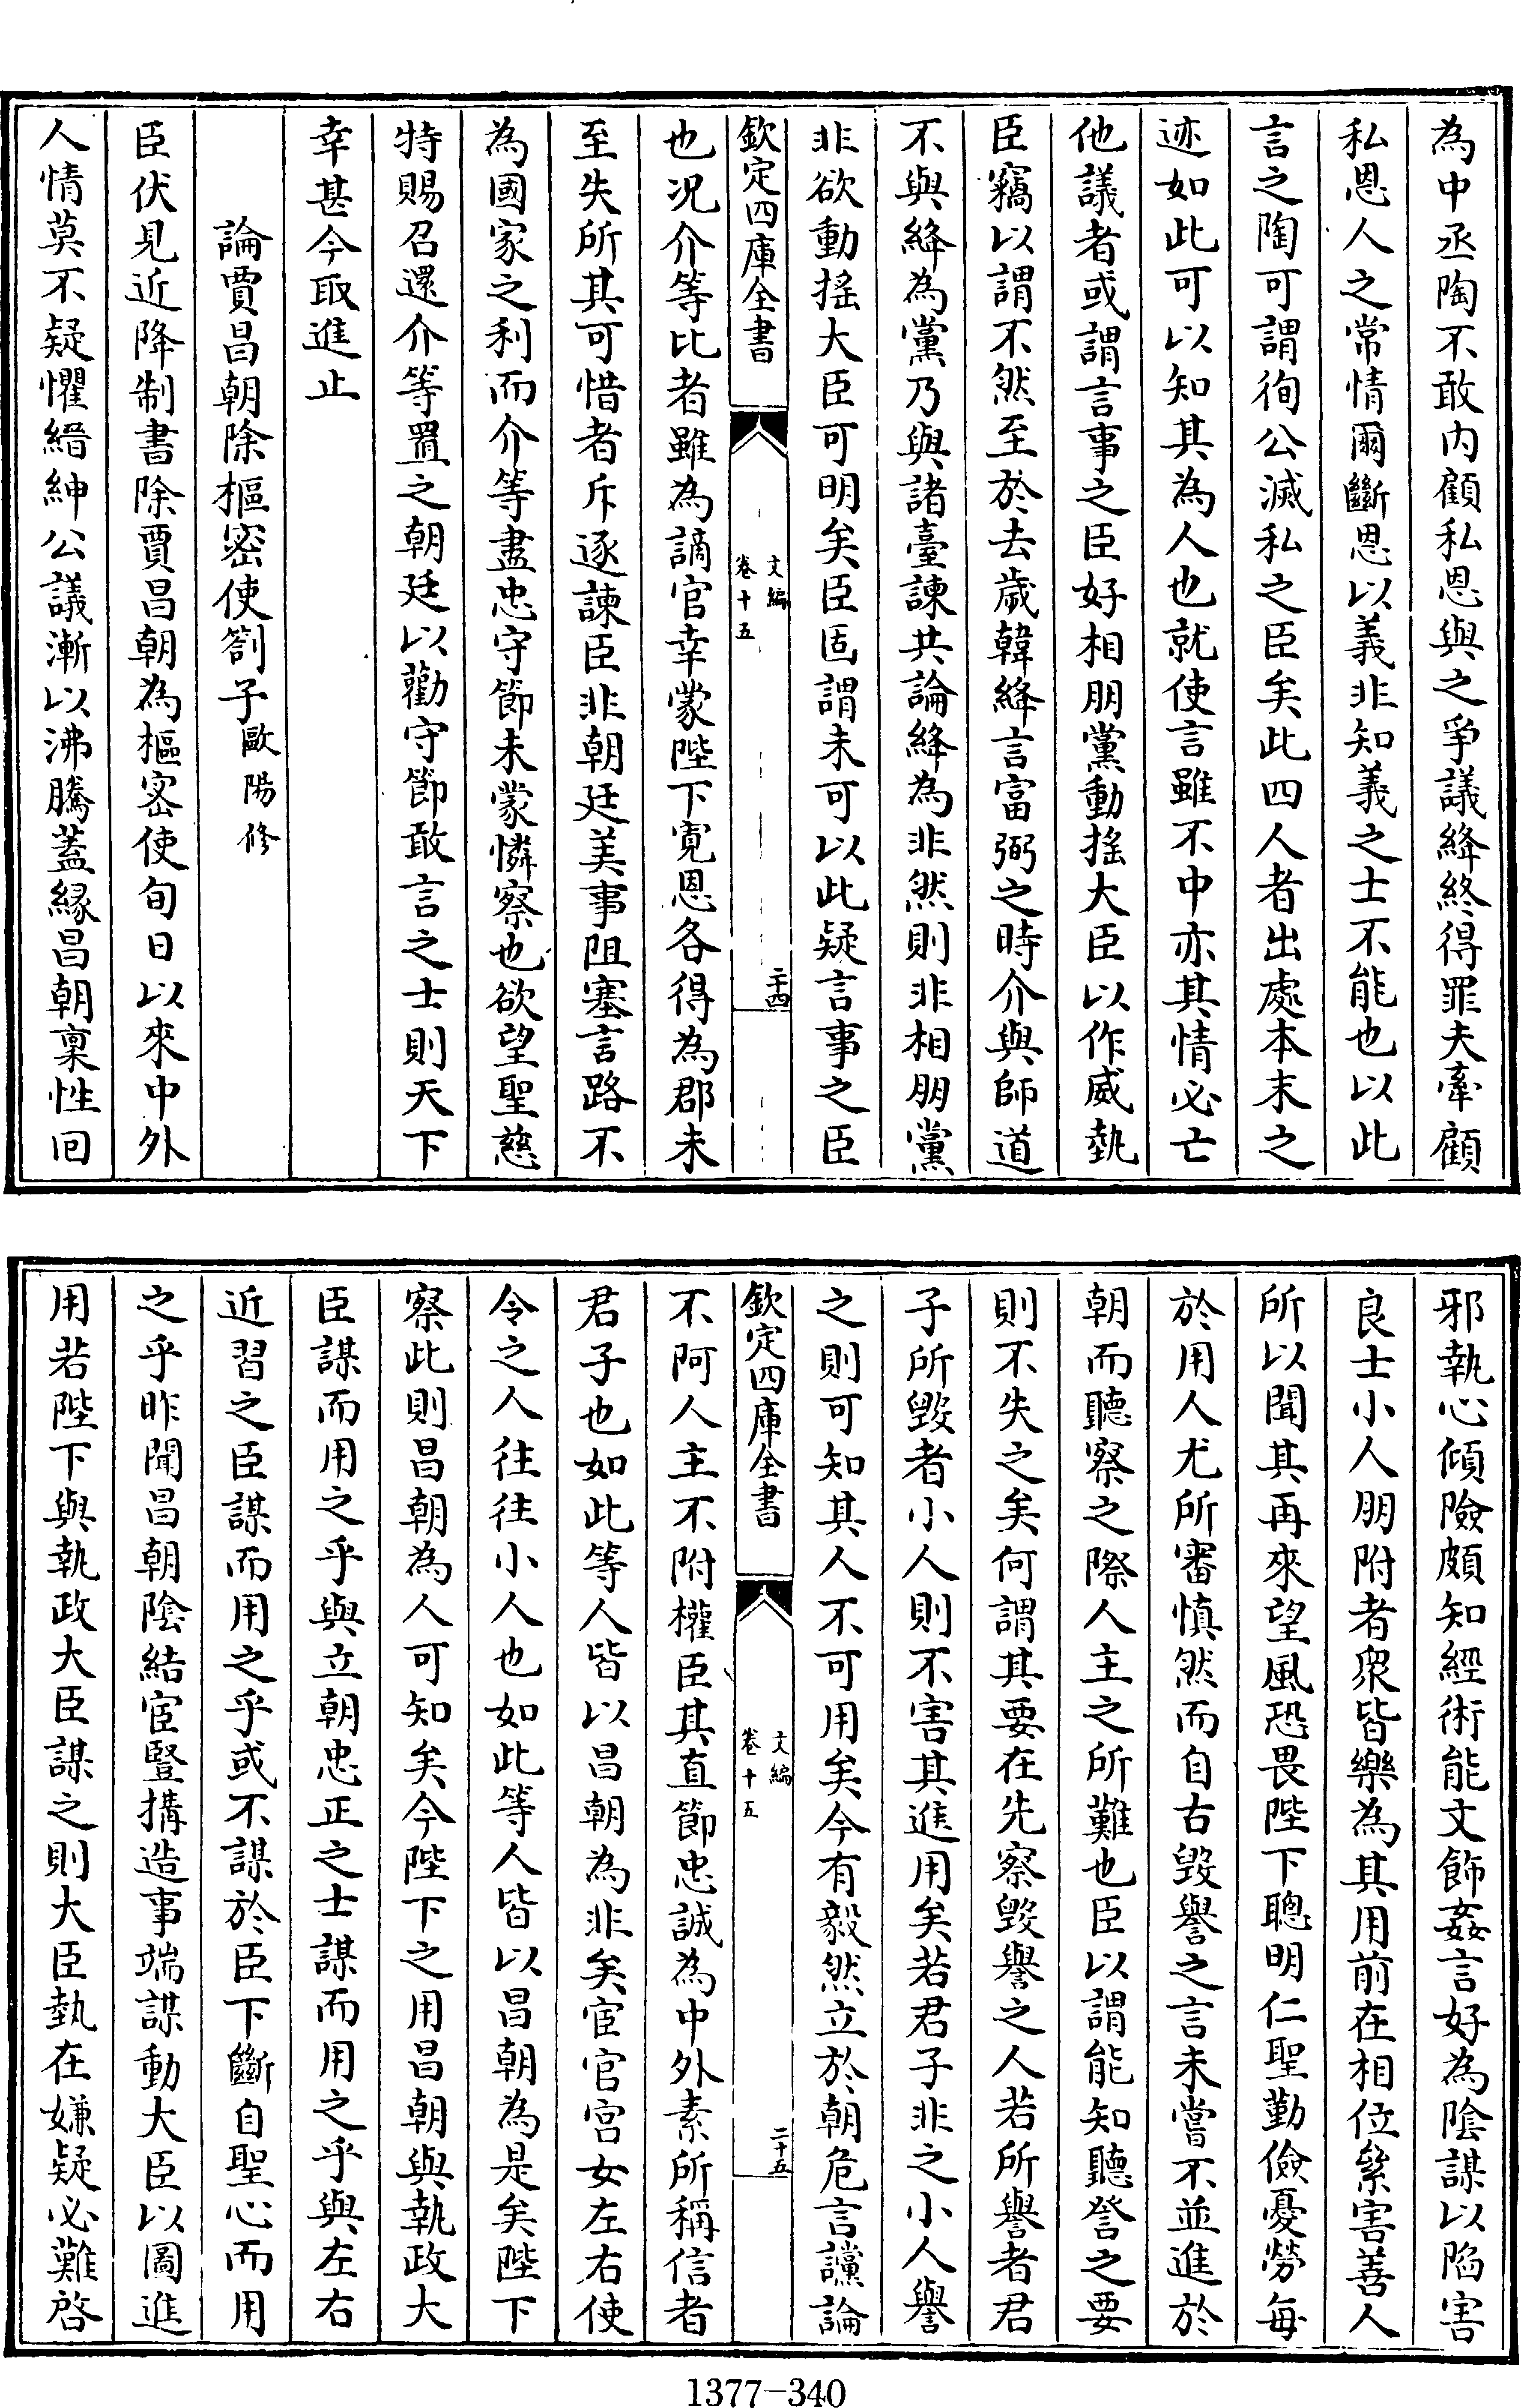 為中丞陶不敢内顧私恩與之爭議絳終得罪夫牽顧
私恩人之常情爾斷恩以義非知義之士不能也以此
言之陶可謂徇公滅私之臣矣此四人者出處本末之
迹如此可以知其為人也就使言雖不中亦其情必亡
他議者或謂言事之臣好相朋黨動搖大臣以作威埶
臣竊以謂不然至於去歲韓絳言富弼之時介與師道
不與絳為黨乃與諸臺諫共論絳為非然則非相朋黨
非欲動搖大臣可明矣臣固謂未可以此疑言事之臣
欽定四庫全書
文編
卷十五
二十四
也况介等比者雖為謫官幸蒙陛下寛恩各得為郡未
至失所其可惜者斥逐諫臣非朝廷美事阻塞言路不
為國家之利而介等盡忠守節未蒙憐察也欲望聖慈
特賜召還介等置之朝廷以勸守節敢言之士則天下
幸甚今取進止
論賈昌朝除樞密使劄子歐陽修
臣伏見近降制書除賈昌朝為樞密使旬日以來中外
人情莫不疑懼縉紳公議漸以沸騰蓋緣昌朝稟性囘
邪執心傾險頗知經術能文飾姦言好為陰謀以陷害
良士小人朋附者衆皆樂為其用前在相位絫害善人
所以聞其再來望風恐畏陛下聰明仁聖勤儉憂勞每
於用人尤所審慎然而自古毀譽之言未嘗不並進於
朝而聽察之際人主之所難也臣以謂能知聽詧之要
則不失之矣何謂其要在先察毀譽之人若所譽者君
子所毀者小人則不害其進用矣若君子非之小人譽
之則可知其人不可用矣今有毅然立於朝危言讜論
欽定四庫全書
文編
卷十五
二十五
不阿人主不附權臣其直節忠誠為中外素所稱信者
君子也如此等人皆以昌朝為非矣宦官宮女左右使
令之人往往小人也如此等人皆以昌朝為是矣陛下
察此則昌朝為人可知矣今陛下之用昌朝與執政大
臣謀而用之乎與立朝忠正之士謀而用之乎與左右
近習之臣謀而用之乎或不謀於臣下斷自聖心而用
之乎昨聞昌朝陰結宦豎搆造事端謀動大臣以圖進
用若陛下與執政大臣謀之則大臣埶在嫌疑必難啓
1377-340